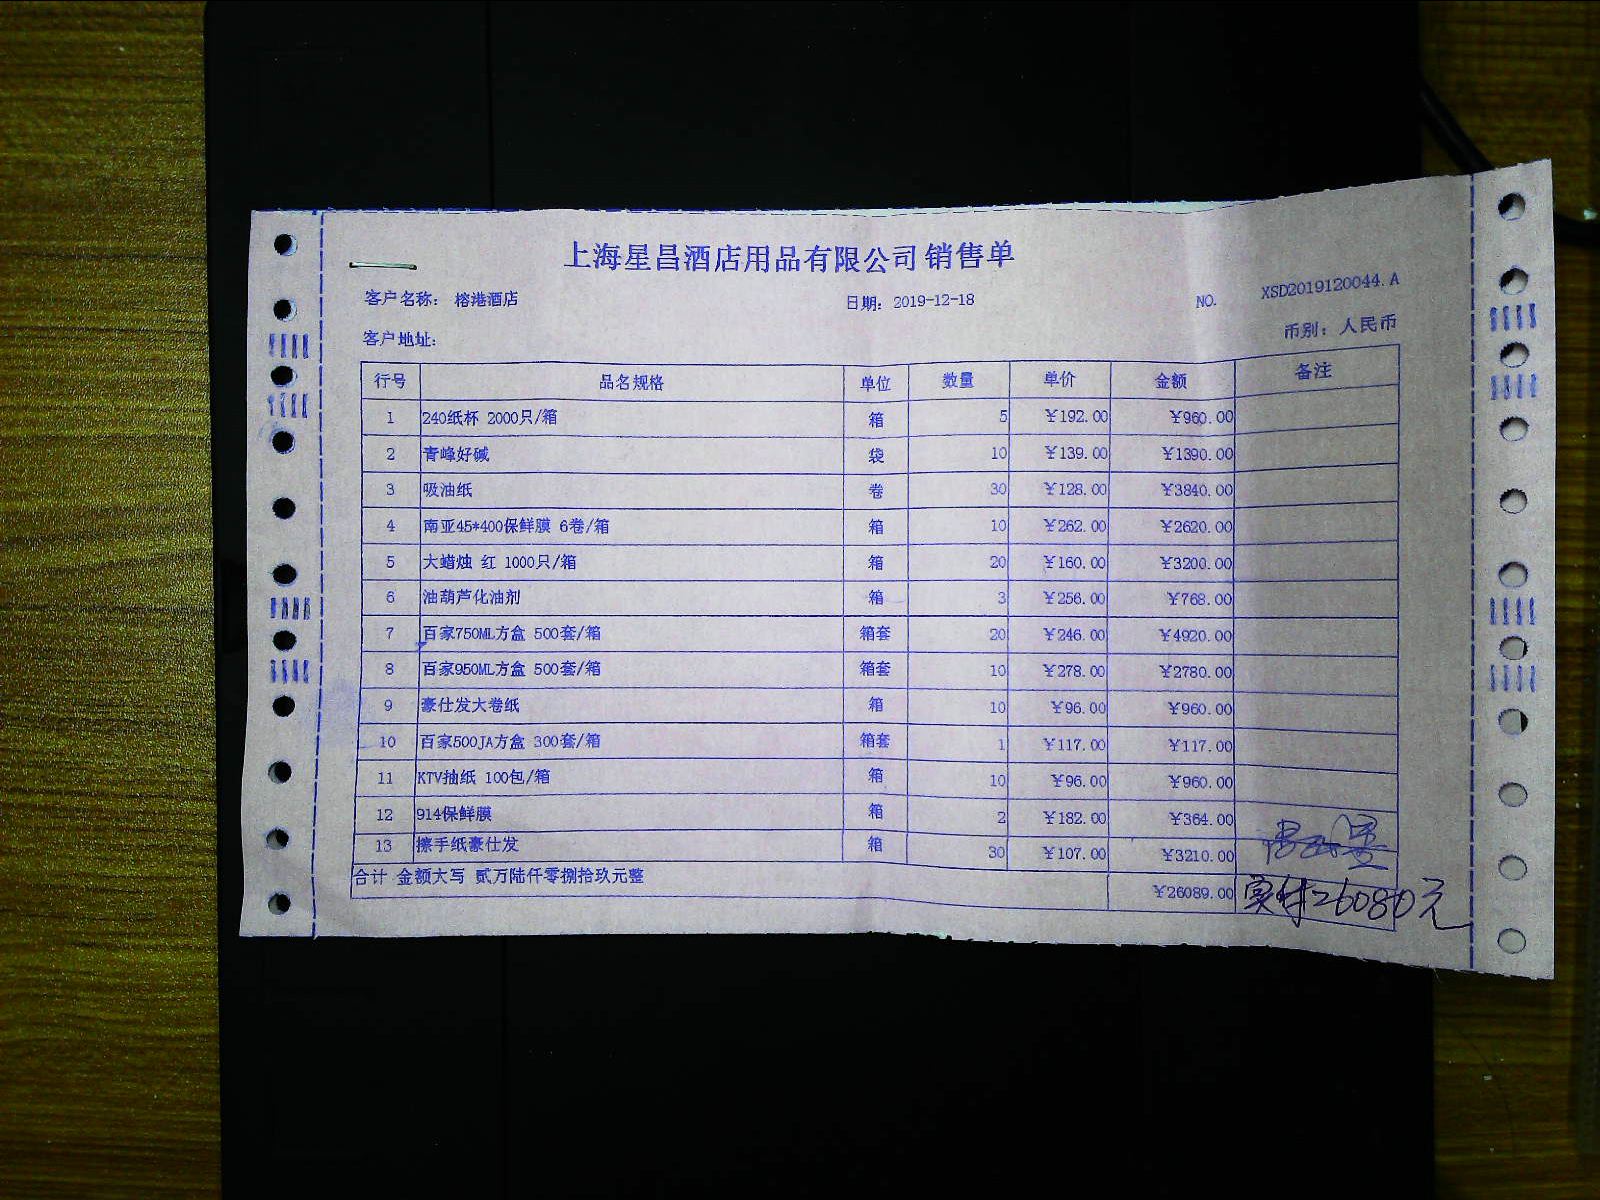 上海星昌酒店用品有限公司 销售单
客户名称: 榕港酒店 日期: 2019-12-18 NO. XSD2019120044.A
客户地址: 币别: 人民币
行号 品名规格 单位 数量 单价 金额 备注
1 240纸杯 2000只/箱 箱 5 ¥192.00 ¥960.00
2 青峰好碱 袋 10 ¥139.00 ¥1390.00
3 吸油纸 卷 30 ¥128.00 ¥3840.00
4 南亚45*400保鲜膜 6卷/箱 箱 10 ¥262.00 ¥2620.00
5 大蜡烛 红 1000只/箱 箱 20 ¥160.00 ¥3200.00
6 油葫芦化油剂 箱 3 ¥256.00 ¥768.00
7 百家750ML方盒 500套/箱 箱套 20 ¥246.00 ¥4920.00
8 百家950ML方盒 500套/箱 箱套 10 ¥278.00 ¥2780.00
9 豪仕发大卷纸 箱 10 ¥96.00 ¥960.00
10 百家500JA方盒 300套/箱 箱套 1 ¥117.00 ¥117.00
11 KTV抽纸 100包/箱 箱 10 ¥96.00 ¥960.00
12 914保鲜膜 箱 2 ¥182.00 ¥364.00
13 擦手纸豪仕发 箱 30 ¥107.00 ¥3210.00
合计 金额大写 贰万陆仟零捌拾玖元整 ¥26089.00 实付26080元